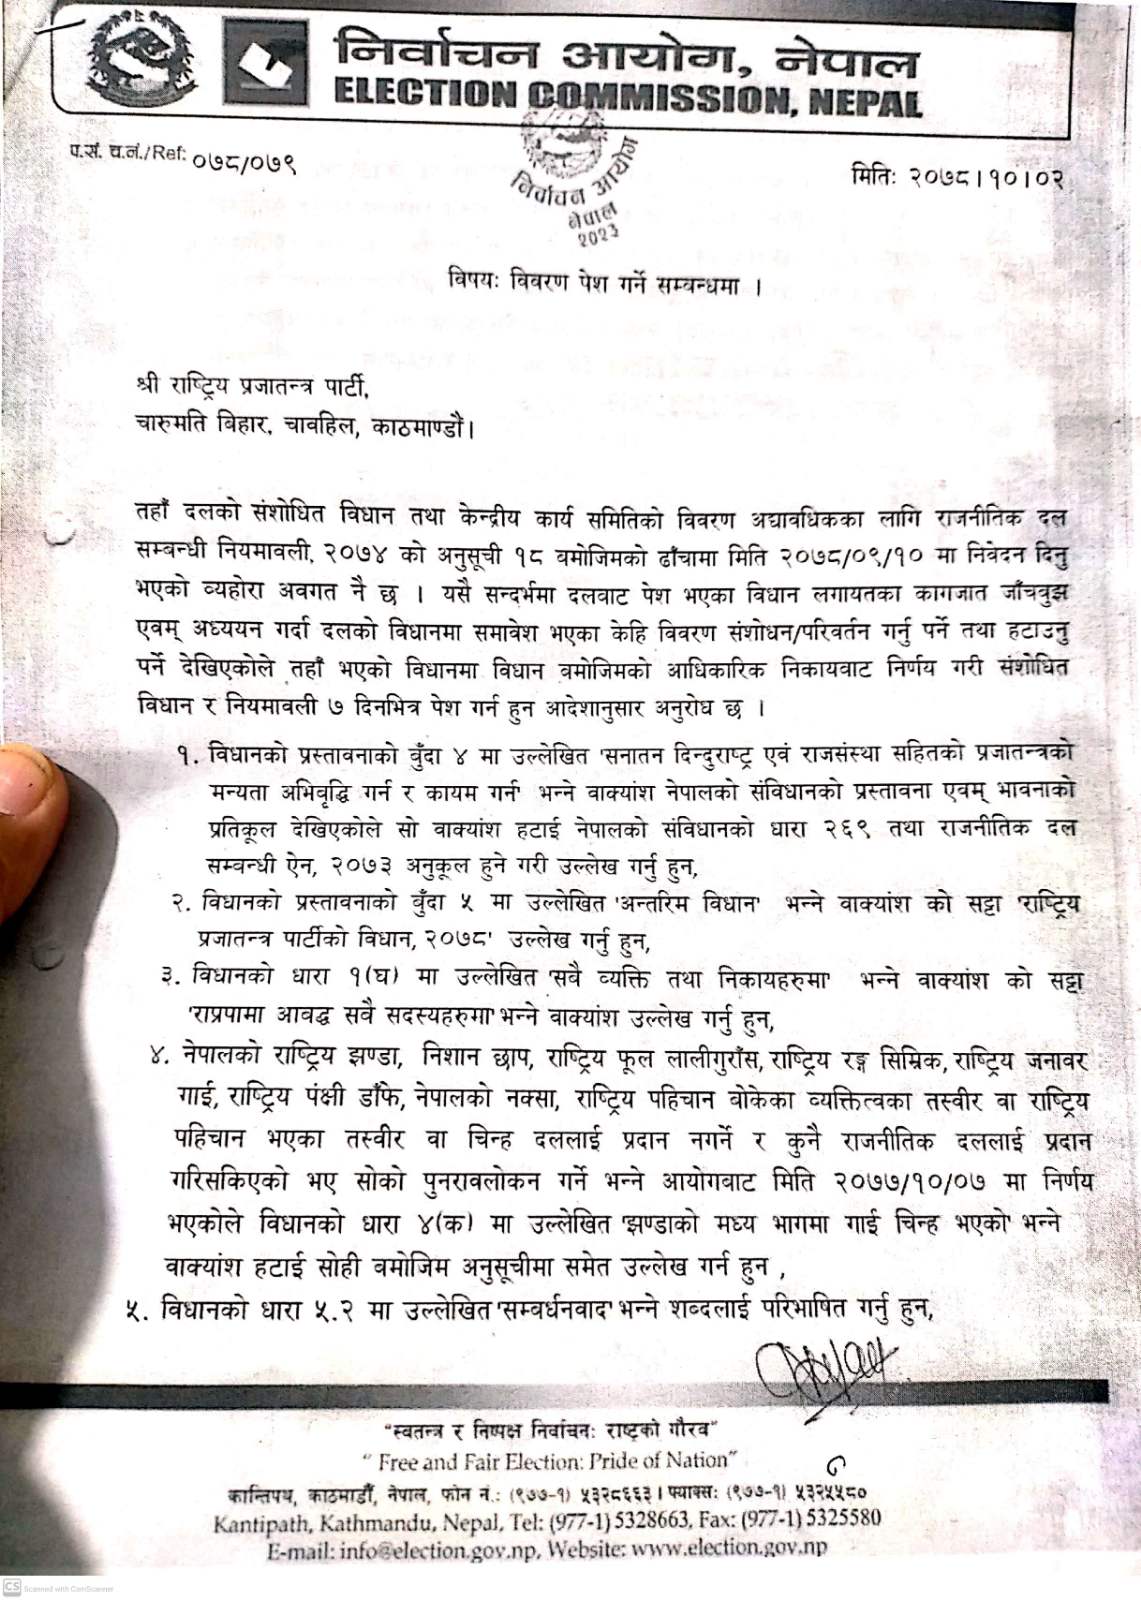 निर्वाचन आयोग, नेपाल
ELECTION COMMISSION, NEPAL
प.सं. च.नं./Ref: ०७८/०७९
निर्वाचन आयोग
नेपाल
२०२३
मितिः २०७८।१०।०२
विषयः विवरण पेश गर्ने सम्वन्धमा ।
श्री राष्ट्रिय प्रजातन्त्र पार्टी,
चारुमति बिहार, चावहिल, काठमाण्डौं।
तहाँ दलको संशोधित विधान तथा केन्द्रीय कार्य समितिको विवरण अद्यावधिकका लागि राजनीतिक दल
सम्बन्धी नियमावली, २०७४ को अनुसूची १८ वमोजिमको ढाँचामा मिति २०७८/०९/१० मा निवेदन दिनु
भएको व्यहोरा अवगत नै छ । यसै सन्दर्भमा दलवाट पेश भएका विधान लगायतका कागजात जाँचवुझ
एवम् अध्ययन गर्दा दलको विधानमा समावेश भएका केहि विवरण संशोधन/परिवर्तन गर्नु पर्ने तथा हटाउनु
पर्ने देखिएकोले तहाँ भएको विधानमा विधान वमोजिमको आधिकारिक निकायवाट निर्णय गरी संशोधित
विधान र नियमावली ७ दिनभित्र पेश गर्न हुन आदेशानुसार अनुरोध छ ।
१. विधानको प्रस्तावनाको वुँदा ४ मा उल्लेखित 'सनातन दिन्दुराष्ट्र एवं राजसंस्था सहितको प्रजातन्त्रको
मन्यता अभिवृद्धि गर्न र कायम गर्न' भन्ने वाक्यांश नेपालको संविधानको प्रस्तावना एवम् भावनाको
प्रतिकूल देखिएकोले सो वाक्यांश हटाई नेपालको संविधानको धारा २६९ तथा राजनीतिक दल
सम्वन्धी ऐन, २०७३ अनुकूल हुने गरी उल्लेख गर्नु हुन,
२. विधानको प्रस्तावनाको वुँदा ५ मा उल्लेखित 'अन्तरिम विधान' भन्ने वाक्यांश को सट्टा 'राष्ट्रिय
प्रजातन्त्र पार्टीको विधान, २०७८' उल्लेख गर्नु हुन,
३. विधानको धारा १(घ) मा उल्लेखित 'सवै व्यक्ति तथा निकायहरुमा' भन्ने वाक्यांश को सट्टा
'राप्रपामा आवद्ध सवै सदस्यहरुमा' भन्ने वाक्यांश उल्लेख गर्नु हुन,
४. नेपालको राष्ट्रिय झण्डा, निशान छाप, राष्ट्रिय फूल लालीगुराँस, राष्ट्रिय रङ्ग सिम्रिक, राष्ट्रिय जनावर
गाई, राष्ट्रिय पंक्षी डाँफे, नेपालको नक्सा, राष्ट्रिय पहिचान वोकेका व्यक्तित्वका तस्वीर वा राष्ट्रिय
पहिचान भएका तस्वीर वा चिन्ह दललाई प्रदान नगर्ने र कुनै राजनीतिक दललाई प्रदान
गरिसकिएको भए सोको पुनरावलोकन गर्ने भन्ने आयोगबाट मिति २०७७/१०/०७ मा निर्णय
भएकोले विधानको धारा ४(क) मा उल्लेखित 'झण्डाको मध्य भागमा गाई चिन्ह भएको' भन्ने
वाक्यांश हटाई सोही वमोजिम अनुसूचीमा समेत उल्लेख गर्न हुन ,
५. विधानको धारा ५.२ मा उल्लेखित 'सम्वर्धनवाद' भन्ने शब्दलाई परिभाषित गर्नु हुन,
"स्वतन्त्र र निष्पक्ष निर्वाचनः राष्ट्रको गौरव"
" Free and Fair Election: Pride of Nation"
कान्तिपथ, काठमाडौं, नेपाल, फोन नं.: (९७७-१) ५३२८६६३। फ्याक्सः (९७७-१) ५३२५५८०
Kantipath, Kathmandu, Nepal, Tel: (977-1) 5328663, Fax: (977-1) 5325580
E-mail: info@election.gov.np, Website: www.election.gov.np
CS Scanned with CamScanner